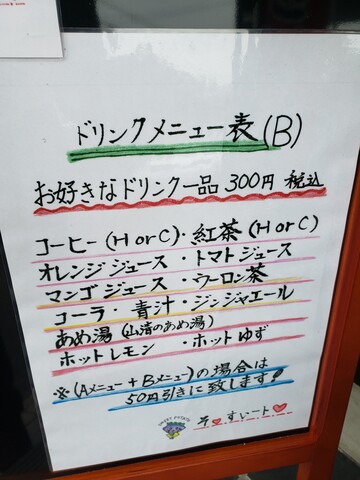 ドリンクメニュー表(B)
お好きなドリンク一品 300円 税込
コーヒー(HorC)・紅茶(HorC)
オレンジジュース・トマトジュース
マンゴジュース・ウーロン茶
コーラ・青汁・ジンジャエール
あめ湯(山清のあめ湯)
ホットレモン・ホットゆず
※(Aメニュー+Bメニュー)の場合は
50円引きに致します!
SWEET POTATO
そ♥すいート♥